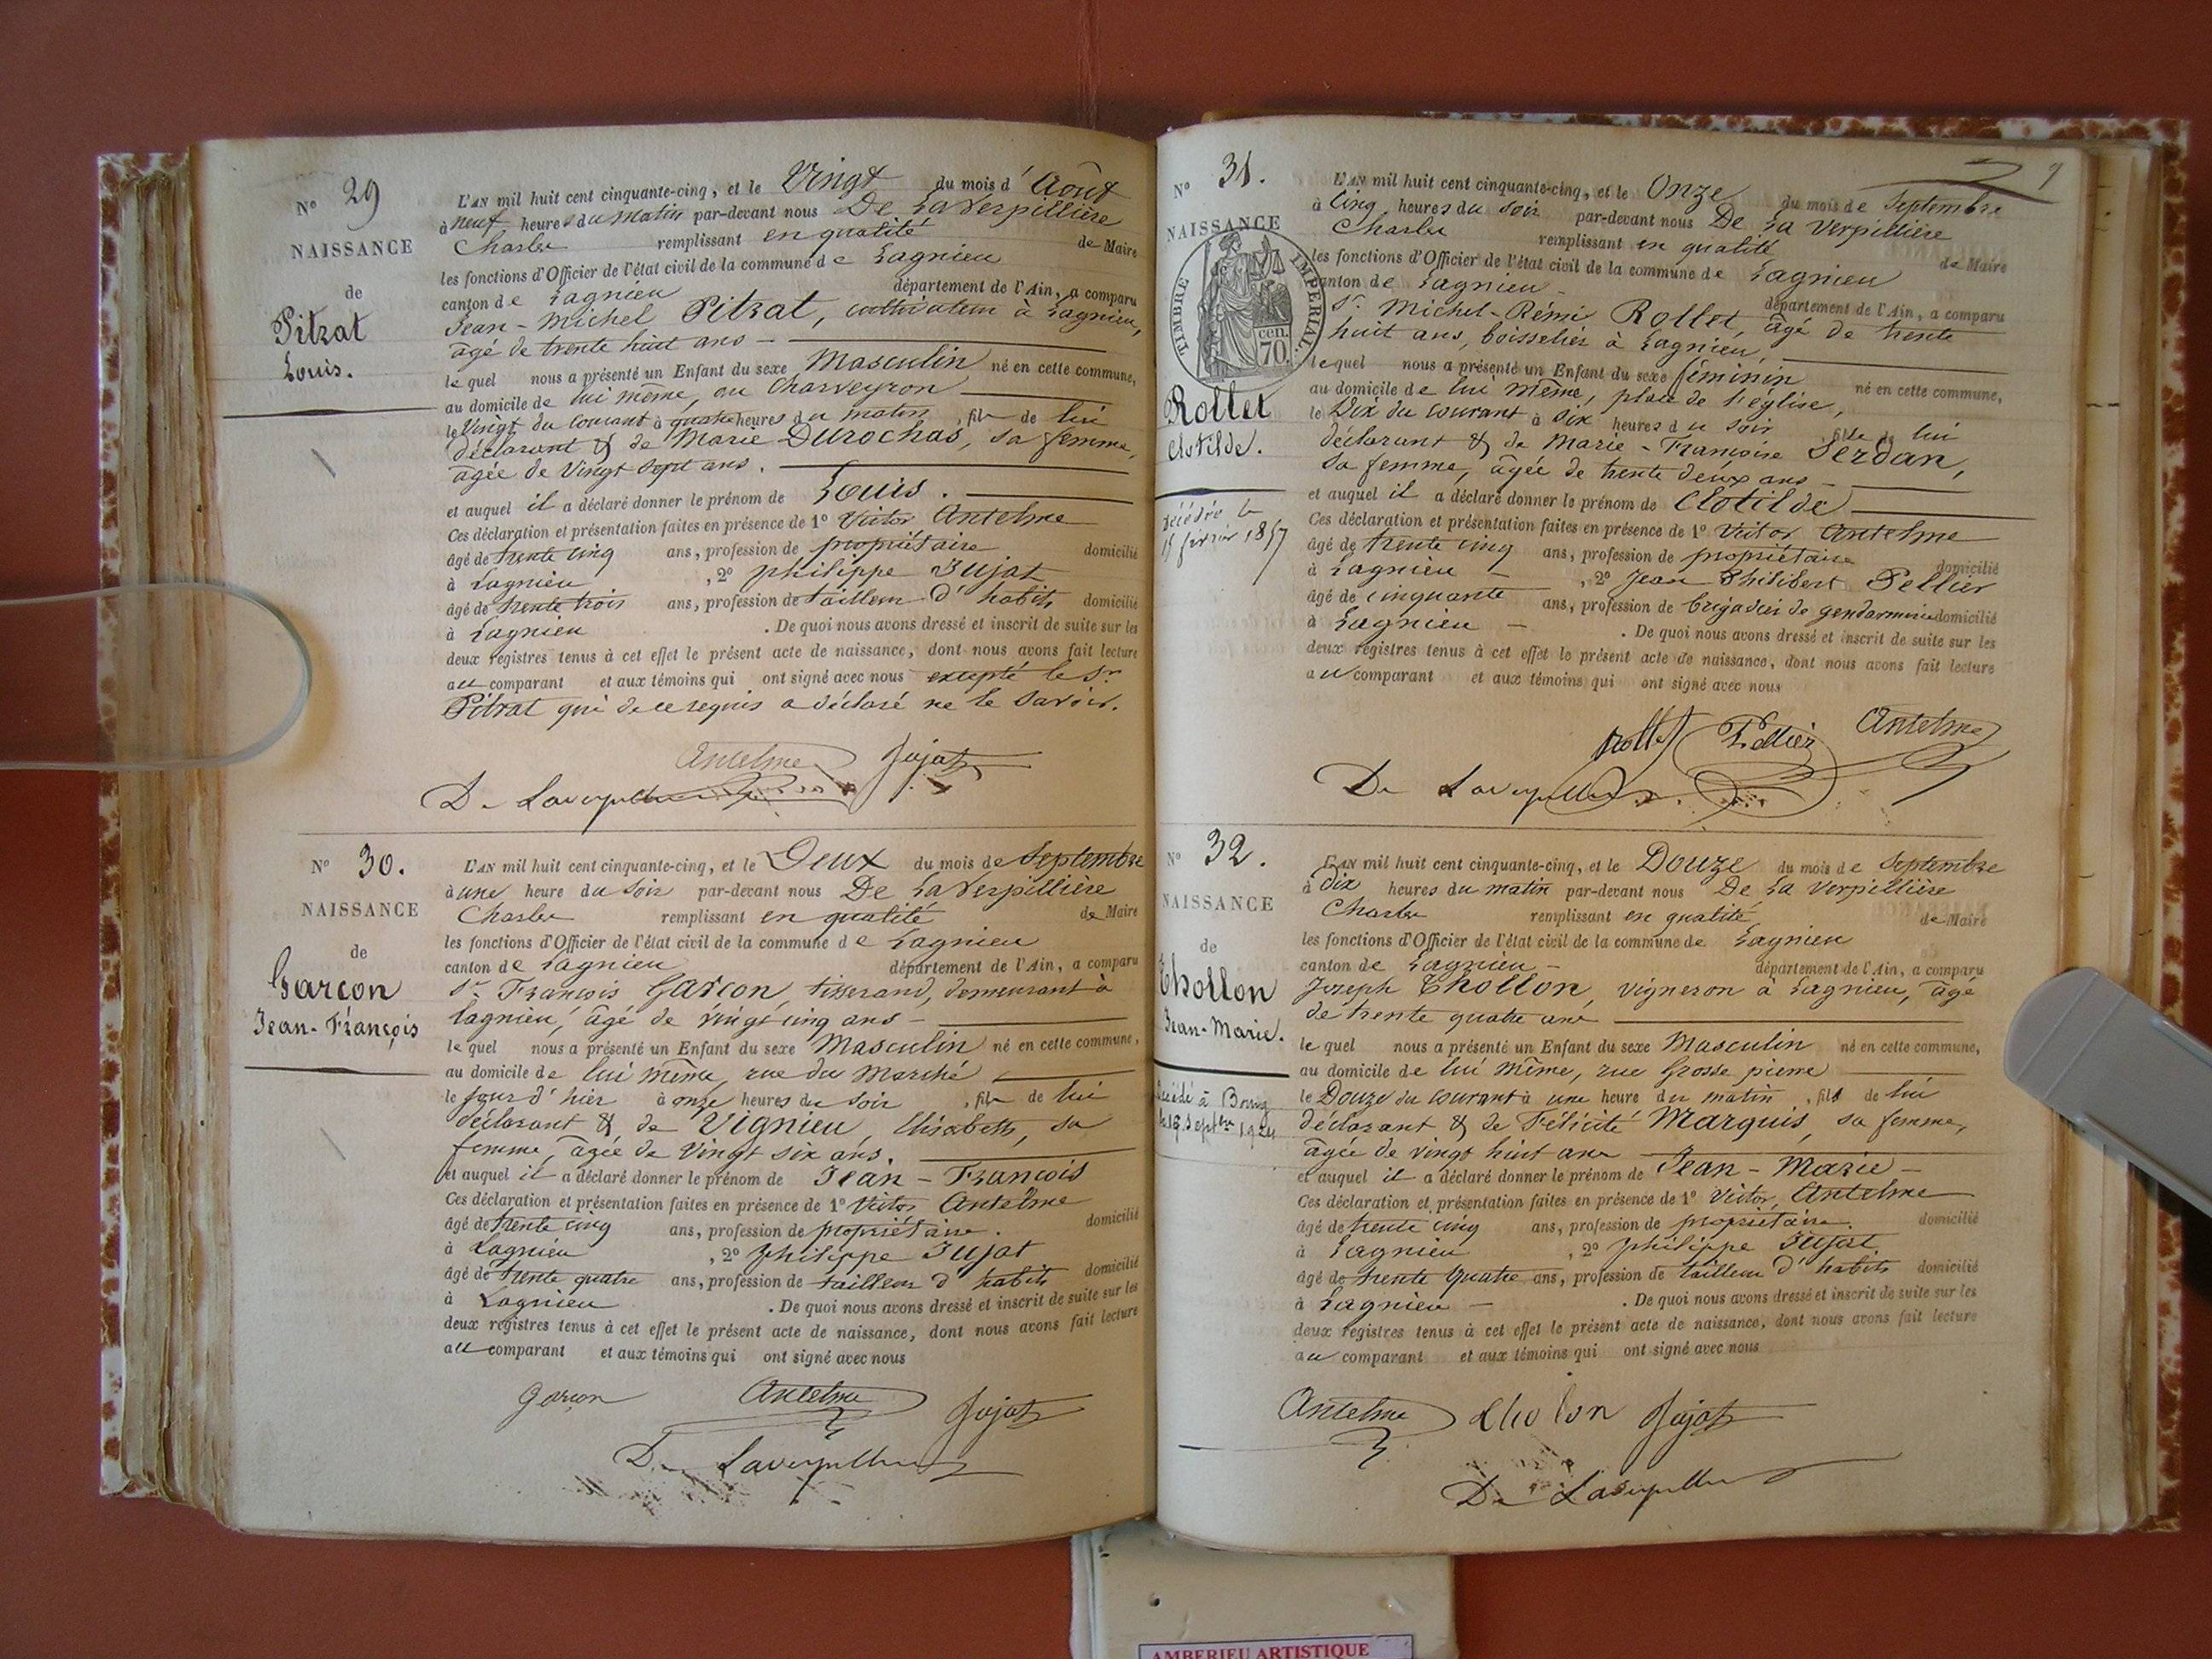 N° 29
NAISSANCE
de
Pitrat
Louis.
L'AN mil huit cent cinquante-cinq, et le Vingt du mois d' Août
à neuf heures du matin par-devant nous De La Verpillière
Charles remplissant en qualité de Maire
les fonctions d'Officier de l'état civil de la commune de Lagnieu
canton de Lagnieu département de l'Ain, a comparu
Jean-Michel Pitrat, cultivateur à Lagnieu,
âgé de trente huit ans
lequel nous a présenté un Enfant du sexe Masculin né en cette commune,
au domicile de lui même, au Charveyron
le Vingt du courant à quatre heures du matin, fils de lui
déclarant & de Marie Durochas, sa femme,
âgée de Vingt sept ans.
et auquel il a déclaré donner le prénom de Louis.
Ces déclaration et présentation faites en présence de 1° Victor Antelme
âgé de trente cinq ans, profession de propriétaire domicilié
à Lagnieu, 2° philippe Jujat
âgé de trente trois ans, profession de tailleur d'habits domicilié
à Lagnieu. De quoi nous avons dressé et inscrit de suite sur les
deux registres tenus à cet effet le présent acte de naissance, dont nous avons fait lecture
au comparant et aux témoins qui ont signé avec nous excepté le Sr
Pitrat qui de ce requis a déclaré ne le savoir.
Antelme Jujat
De Laverpillière
N° 30.
NAISSANCE
de
Garcon
Jean-François
L'AN mil huit cent cinquante-cinq, et le Deux du mois de Septembre
à une heure du soir par-devant nous De La Verpillière
Charles remplissant en qualité de Maire
les fonctions d'Officier de l'état civil de la commune de Lagnieu
canton de Lagnieu département de l'Ain, a comparu
Sr François Garcon, tisserand, demeurant à
Lagnieu, âgé de vingt cinq ans
lequel nous a présenté un Enfant du sexe Masculin né en cette commune,
au domicile de lui même, rue du Marché
le jour d'hier à onze heures du soir, fils de lui
déclarant & de Vignieu, Elisabeth, sa
femme, âgée de Vingt six ans.
et auquel il a déclaré donner le prénom de Jean-François
Ces déclaration et présentation faites en présence de 1° Victor Antelme
âgé de trente cinq ans, profession de propriétaire. domicilié
à Lagnieu, 2° philippe Jujat
âgé de trente quatre ans, profession de tailleur d'habits domicilié
à Lagnieu. De quoi nous avons dressé et inscrit de suite sur les
deux registres tenus à cet effet le présent acte de naissance, dont nous avons fait lecture
au comparant et aux témoins qui ont signé avec nous
Garcon Antelme Jujat
De Laverpillière
9
N° 31.
NAISSANCE
TIMBRE IMPERIAL
cen.
70.
Rollet
Clotilde.
décédée le
15 février 1857
L'AN mil huit cent cinquante-cinq, et le Onze du mois de Septembre
à Cinq heures du soir par-devant nous De La Verpillière
Charles remplissant en qualité de Maire
les fonctions d'Officier de l'état civil de la commune de Lagnieu
canton de Lagnieu département de l'Ain, a comparu
Sr Michel-Rémi Rollet, âgé de trente
huit ans, boisselier à Lagnieu,
lequel nous a présenté un Enfant du sexe féminin né en cette commune,
au domicile de lui même, place de l'église,
le Dix du courant à Six heures du soir fille de lui
déclarant & de Marie-Françoise Serdan,
sa femme, âgée de trente deux ans
et auquel il a déclaré donner le prénom de Clotilde
Ces déclaration et présentation faites en présence de 1° Victor Antelme
âgé de trente cinq ans, profession de propriétaire domicilié
à Lagnieu, 2° Jean Philibert Pellier
âgé de cinquante ans, profession de brigadier de gendarmerie domicilié
à Lagnieu. De quoi nous avons dressé et inscrit de suite sur les
deux registres tenus à cet effet le présent acte de naissance, dont nous avons fait lecture
au comparant et aux témoins qui ont signé avec nous
Rollet Pellier Antelme
De Laverpillière
N° 32.
NAISSANCE
de
Chollon
Jean-Marie.
Décédé à Bourg
le 18 Septbre 1924
L'AN mil huit cent cinquante-cinq, et le Douze du mois de Septembre
à Dix heures du matin par-devant nous De La Verpillière
Charles remplissant en qualité de Maire
les fonctions d'Officier de l'état civil de la commune de Lagnieu
canton de Lagnieu département de l'Ain, a comparu
Joseph Chollon, vigneron à Lagnieu, âgé
de trente quatre ans
lequel nous a présenté un Enfant du sexe Masculin né en cette commune,
au domicile de lui même, rue Grosse pierre
le Douze du courant à une heure du matin, fils de lui
déclarant & de Félicité Marquis, sa femme,
âgée de vingt huit ans
et auquel il a déclaré donner le prénom de Jean-Marie
Ces déclaration et présentation faites en présence de 1° Victor Antelme
âgé de trente cinq ans, profession de propriétaire. domicilié
à Lagnieu, 2° philippe Jujat
âgé de trente quatre ans, profession de tailleur d'habits domicilié
à Lagnieu. De quoi nous avons dressé et inscrit de suite sur les
deux registres tenus à cet effet le présent acte de naissance, dont nous avons fait lecture
au comparant et aux témoins qui ont signé avec nous
Antelme Cholon Jujat
De Laverpillière
AMBERIEU ARTISTIQUE